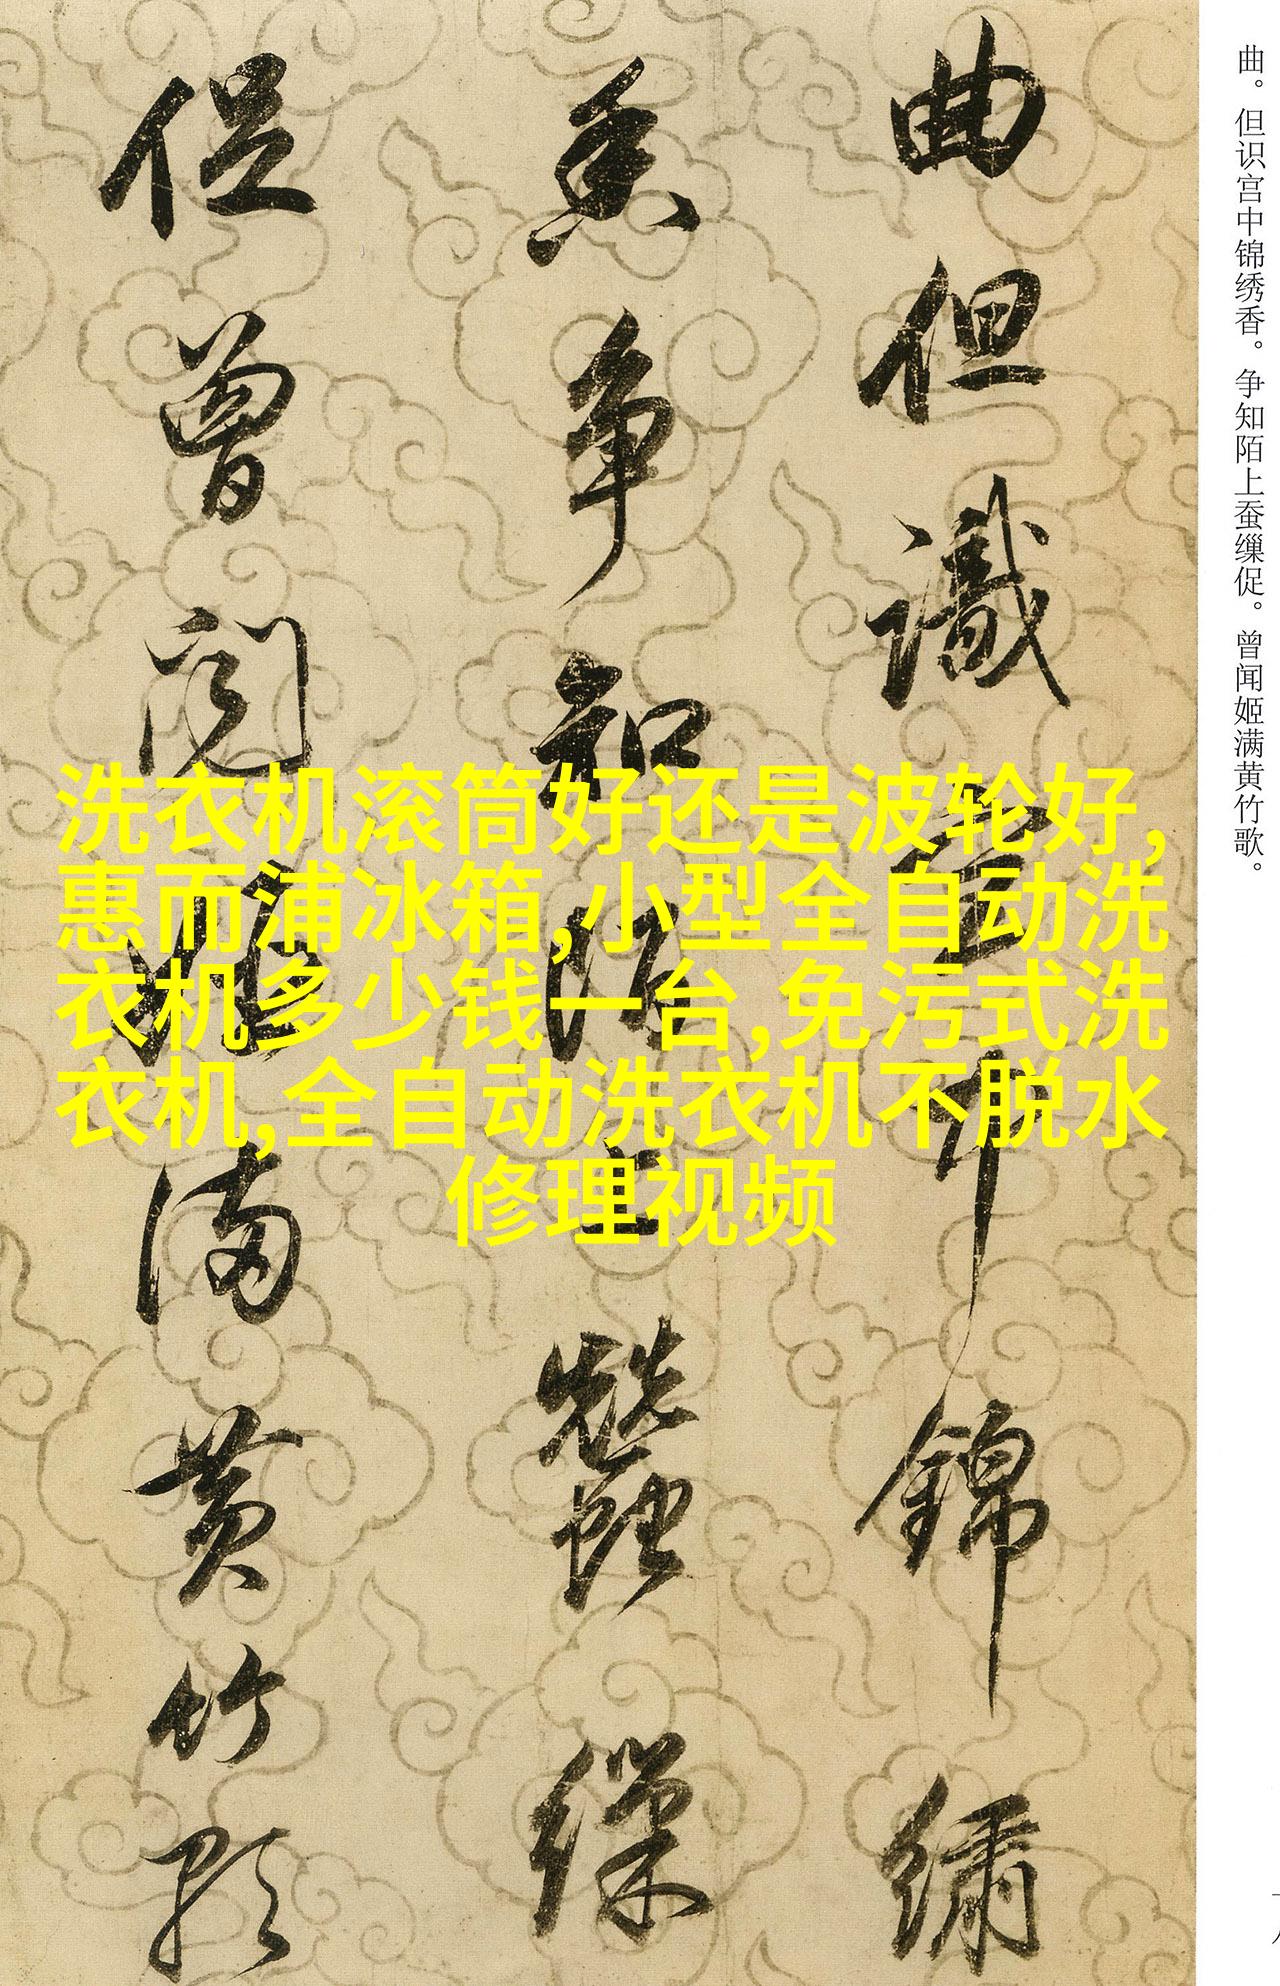 曲。但识宫中锦绣香。争知陌上蚕缫促。曾闻姬满黄竹歌。
曲但識宫中錦繡
香争知陌上蠶繅
促曾闻姬满黄竹歌
洗衣机滚筒好还是波轮好,
惠而浦冰箱,小型全自动洗
衣机多少钱一台,免污式洗
衣机,全自动洗衣机不脱水
修理视频